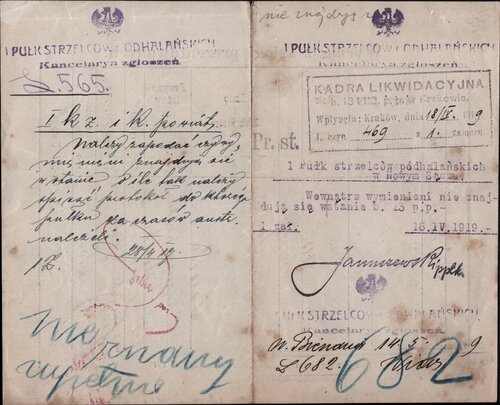 I PUŁK STRZELCÓW PODHALAŃSKICH
Kancelarya zgłoszeń
L.565.
I k z. i k. powiat.
Należy zapodać czy
znajduje się
w stanie O ile tak należy
spisać protokół do którego
pułku za czasów austr.
należeli.
28/4 19.
1 Z.
Nieznany
zupełnie
nie znajduje
I PUŁK STRZELCÓW PODHALAŃSKICH
Kancelarya zgłoszeń
KADRA LIKWIDACYJNA
w Krakowie.
Wpłynęło: Kraków, dnia 18/IV. 1919
L. czyn 469 z 1. załącz.
Pr. st.
1 Pułk strzelców podhalańskich
w Nowym Sączu
Wewnątrz wymienieni nie znaj-
dują się wstanie b. 13 p.p.-
1 zał. 16.IV.1919.-
Januszewski ppłk
I PUŁK STRZELCÓW PODHALAŃSKICH
Kancelarya zgłoszeń
14 5 9
L 682.
682